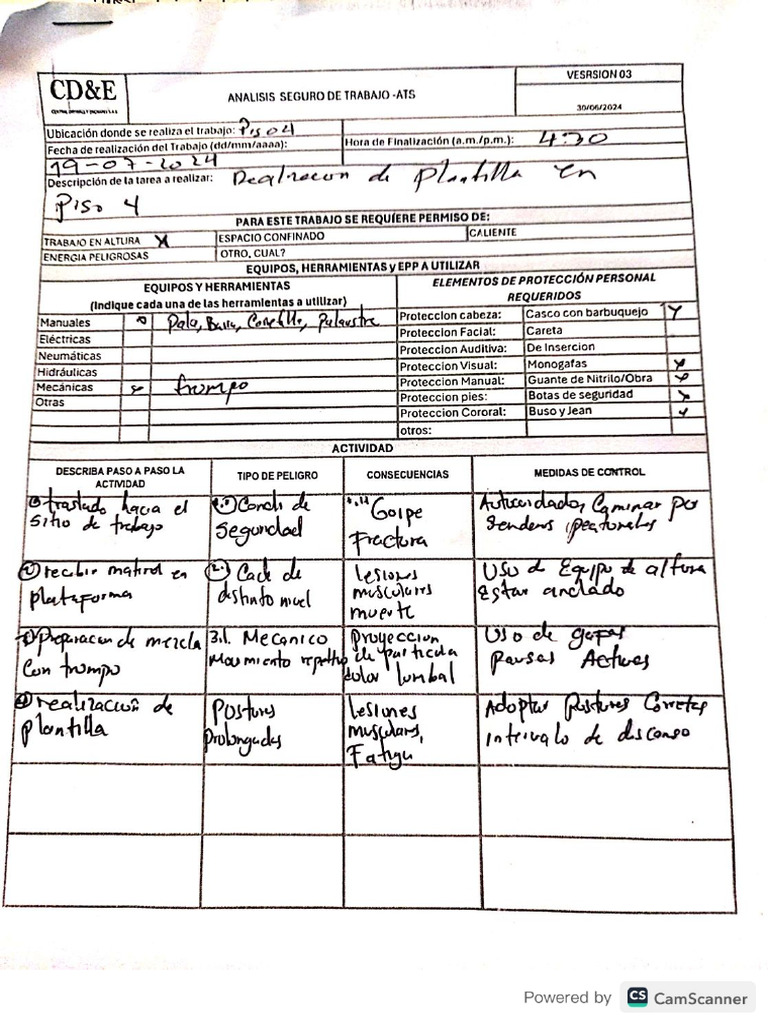 CD&E
ANALISIS SEGURO DE TRABAJO -ATS
VESRSION 03
30/06/2024
Ubicación donde se realiza el trabajo: Piso 4
Fecha de realización del Trabajo (dd/mm/aaaa):
19-07-2024
Hora de Finalización (a.m./p.m.): 4:30
Descripción de la tarea a realizar: Realizacion de plantilla en
Piso 4
PARA ESTE TRABAJO SE REQUIERE PERMISO DE:
TRABAJO EN ALTURA X ESPACIO CONFINADO CALIENTE
ENERGIA PELIGROSAS OTRO, CUAL?
EQUIPOS, HERRAMIENTAS y EPP A UTILIZAR
EQUIPOS Y HERRAMIENTAS
(Indique cada una de las herramientas a utilizar)
Manuales Pala, Palaustre
Eléctricas
Neumáticas
Hidráulicas
Mecánicas X trompo
Otras
ELEMENTOS DE PROTECCIÓN PERSONAL
REQUERIDOS
Proteccion cabeza: Casco con barbuquejo X
Proteccion Facial: Careta
Proteccion Auditiva: De Insercion
Proteccion Visual: Monogafas X
Proteccion Manual: Guante de Nitrilo/Obra X
Proteccion pies: Botas de seguridad X
Proteccion Cororal: Buso y Jean X
otros:
ACTIVIDAD
DESCRIBA PASO A PASO LA
ACTIVIDAD
TIPO DE PELIGRO
CONSECUENCIAS
MEDIDAS DE CONTROL
① traslado hacia el
sitio de trabajo
Condi de
seguridad
Golpe
Fractura
Autocuidado, Caminar por
senderos peatonales
② recibir material en
plataforma
de
distinto nivel
Lesiones
musculares
muerte
Uso de Equipo de altura
Estar anclado
Preparacion de mezcla
Con trompo
3.1. Mecanico
Movimiento repetitivo
Proyeccion
de particula
dolor lumbal
Uso de gafas
Pausas Activas
④ realización de
plantilla
Postures
Prolongadas
Lesiones
musculares,
Fatiga
Adoptar Postures Corretas
intervalo de descanso
Powered by CS CamScanner